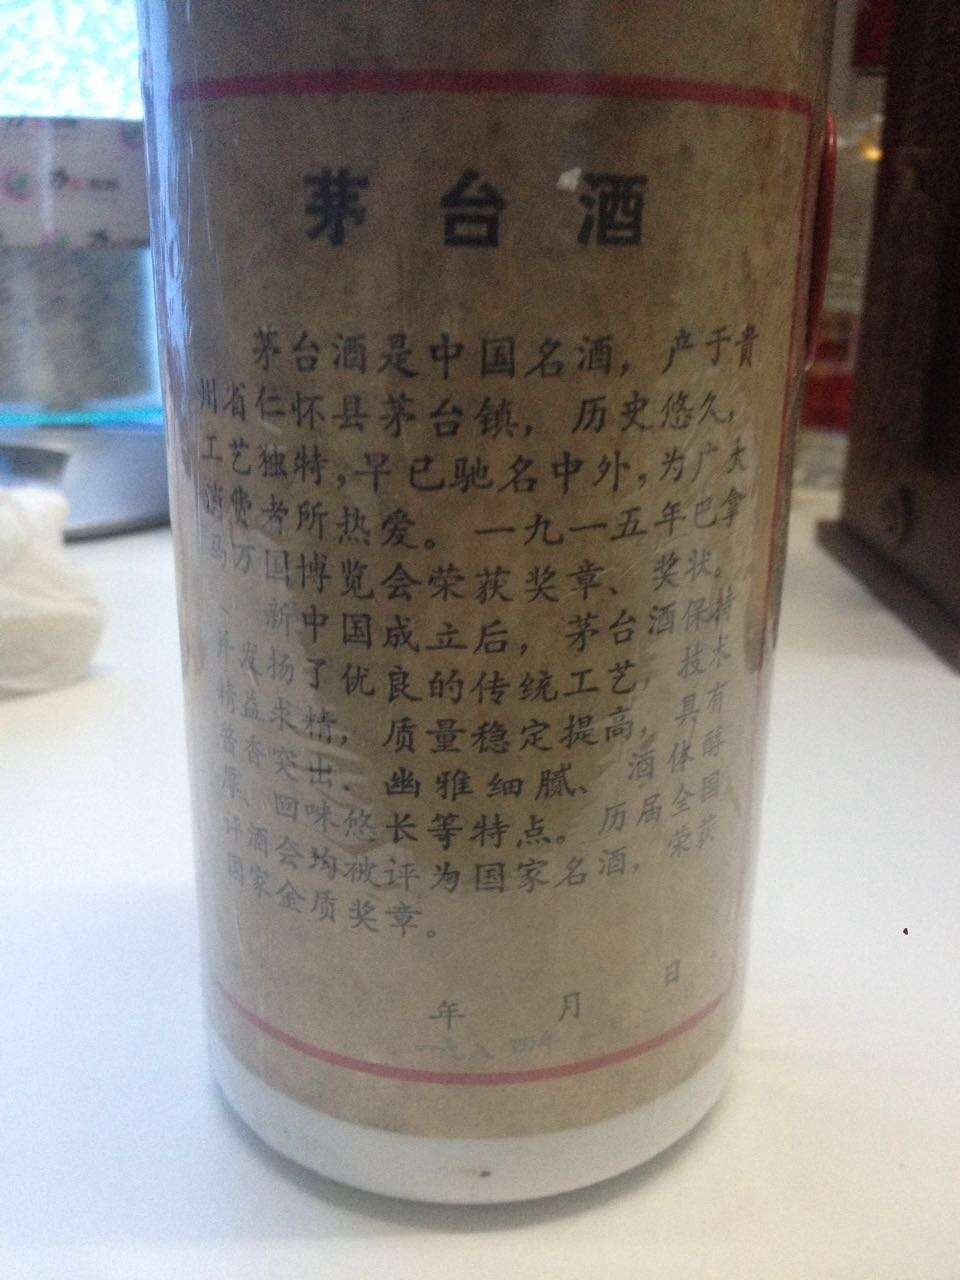 茅台酒
茅台酒是中国名酒，产于贵
州省仁怀县茅台镇，历史悠久，
工艺独特，早已驰名中外，为广大
消费者所热爱。一九一五年巴拿
马万国博览会荣获奖章、奖状。
新中国成立后，茅台酒保持
并发扬了优良的传统工艺，技术
精益求精，质量稳定提高，具有
酱香突出．幽雅细腻、酒体醇
厚、回味悠长等特点。历届全国
评酒会均被评为国家名酒，荣获
国家金质奖章。
年 月 日
一九八四年